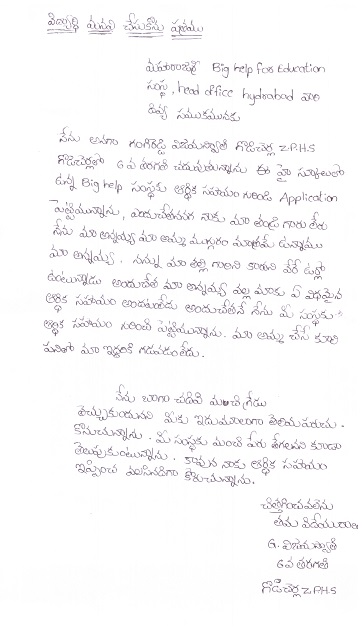 విద్యార్థి మనవి చేసుకొను పత్రము
మహారాజశ్రీ Big help for Education
సంస్థ, head office hydrabad వారి
దివ్య సముఖమునకు
నేను అనగా గంగిరెడ్డి విజయస్వాతి గొడిచెర్ల Z.P.H.S
గొడిచెర్లలో 6వ తరగతి చదువుతున్నాను ఈ హై స్కూలులో
ఉన్న Big help సంస్థకు ఆర్థిక సహాయం గురించి Application
పెట్టుచున్నాను, ఎందుచేతనగా నాకు మా తండ్రి గారు లేరు
నేను మా అన్నయ్య మా అమ్మ ముగ్గురం మాత్రమే ఉన్నాము
మా అన్నయ్య. నన్ను మా తల్లి గారిని కాదని వేరే
ఉంటున్నాడు అందుచేత మా అన్నయ్య వల్ల మాకు ఏ విధమైన
ఆర్థిక సహాయం అందుటలేదు అందుచేతనే నేను మీ సంస్థకు
ఆర్థిక సహాయం గురించి పెట్టుచున్నాను. మా అమ్మ చేసే కూలి
పనితో మా ఇద్దరికి గడువడంలేదు.
నేను బాగా చదివి మంచి గ్రేడు
తెచ్చుకుందునని మీకు ఇందుమూలంగా తెలియపరుచు-
కొనుచున్నాను. మీ సంస్థకు మంచి పేరు తేగలనని కూడా
తెలుపుకుంటున్నాను. కావున నాకు ఆర్థిక సహాయం
ఇప్పించ వలసినదిగా కోరుచున్నాను.
చిత్తగించవలెను
తమ విదేయురాలు
G. విజయస్వాతి
6వ తరగతి
గొడిచెర్ల Z.P.H.S